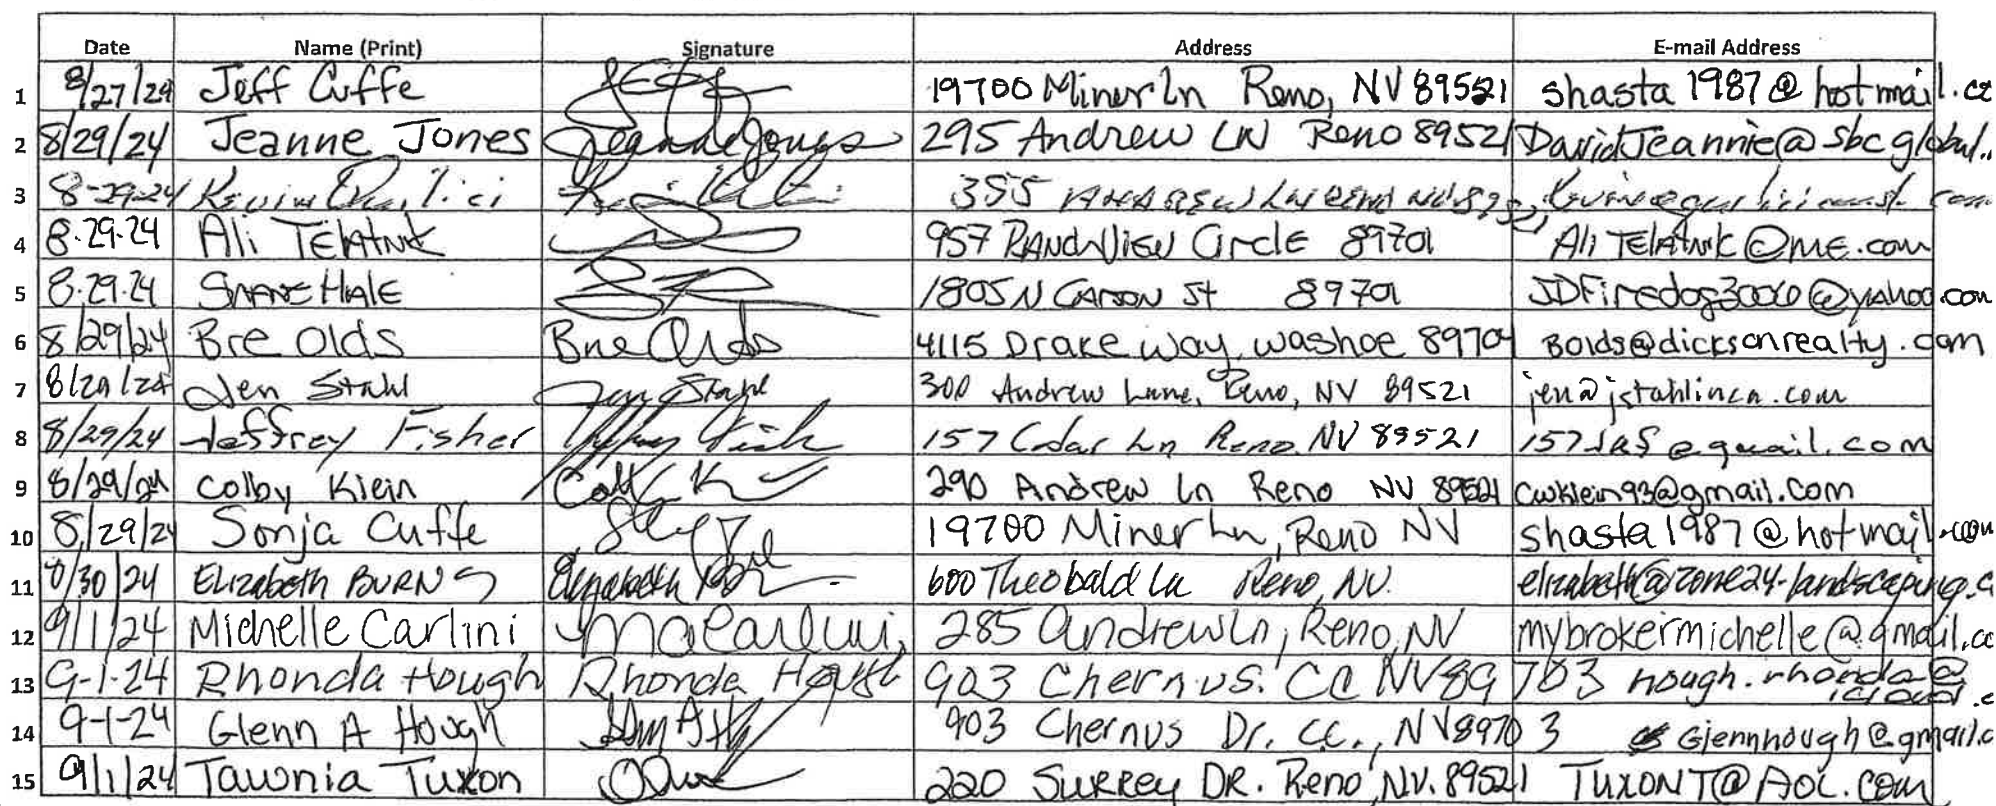 Date Name (Print) Signature Address E-mail Address
1 8/27/24 Jeff Cuffe 19700 Miner Ln Reno, NV 89521 shasta1987@hotmail.co
2 8/29/24 Jeanne Jones Jeanne Jones 295 Andrew LN Reno 89521 DavidJeannie@sbcglobal..
3 8-29-24 Kevin 355 ANDREW LN RENO NV
4 8.29.24 Ali TELATNIK 957 RANDVIEW Circle 89701 AliTELATNIK@ME.com
5 8.29.24 SHANE HALE 1805 N CARSON St 89701 JDFiredog3000@yahoo.com
6 8/29/24 Bre Olds Bre Olds 4115 Drake way, washoe 89704 Bolds@dicksonrealty.com
7 8/29/24 Jen Stahl Jen Stahl 300 Andrew Lane, Reno, NV 89521 jen@jstahlinca.com
8 8/29/24 Jeffrey Fisher 157 Cedar Ln Reno NV 89521 @gmail.com
9 8/29/24 Colby Klein 290 Andrew Ln Reno NV 89521 cwklein93@gmail.com
10 8/29/24 Sonja Cuffe 19700 Miner Ln, Reno NV shasta1987@hotmail.com
11 8/30/24 Elizabeth BURNS Elizabeth 600 Theobald Ln Reno, NV. elizabeth@zone24-landscaping.c
12 9/1/24 Michelle Carlini MaCarlini, 285 Andrew Ln, Reno, NV mybrokermichelle@gmail.co
13 9-1-24 Rhonda Hough Rhonda Hough 903 Chernus. CC NV 89703 hough.rhonda@
icloud.c
14 9-1-24 Glenn A Hough 903 Chernus Dr. C.C., NV 89703 Glennhough@gmail.c
15 9/1/24 Tawnia Tuxon 220 SURREY DR. Reno, NV. 89521 TUXONT@AOL.COM